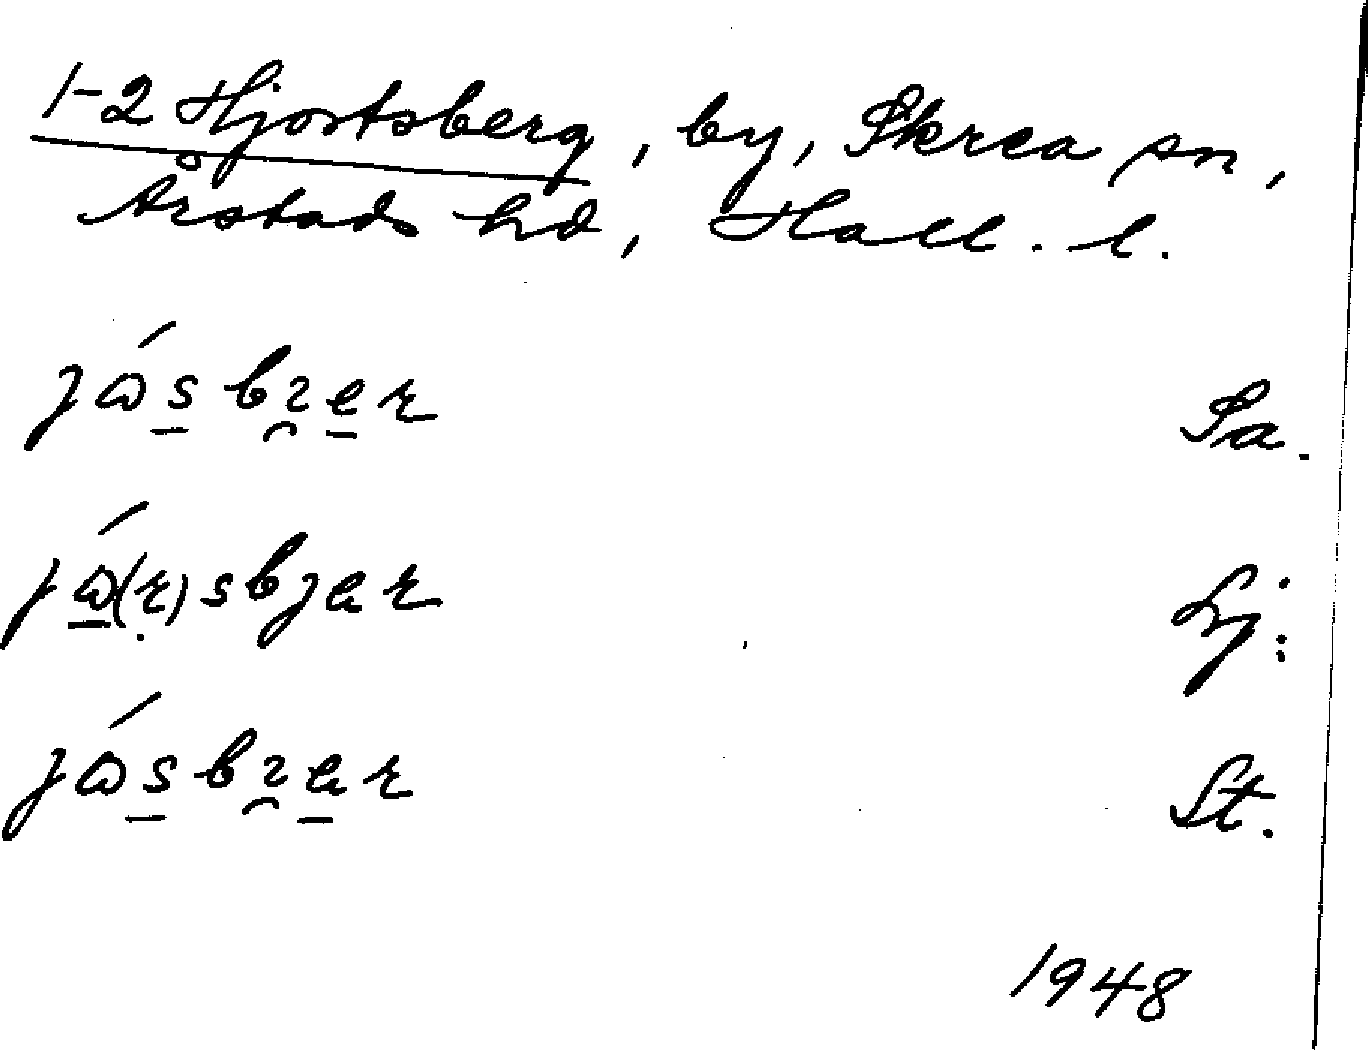 1-2 Hjortsberg, by, Skrea sn,
Årstads hd, Hall. l.
jɷ́sbɿer Sa.
jɷ́(r)sbjar Lj:
jɷ́sbɿar St.
1948